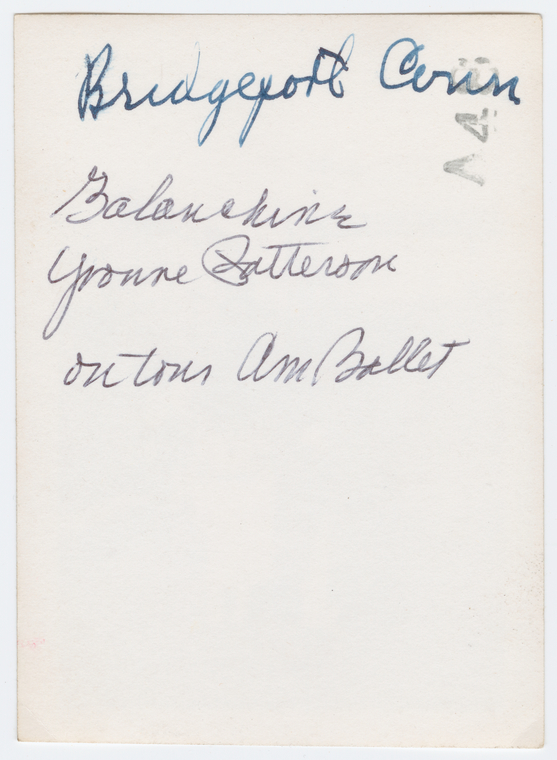 Bridgeport Conn
Balanchine
Yvonne Patterson
on tour Am Ballet